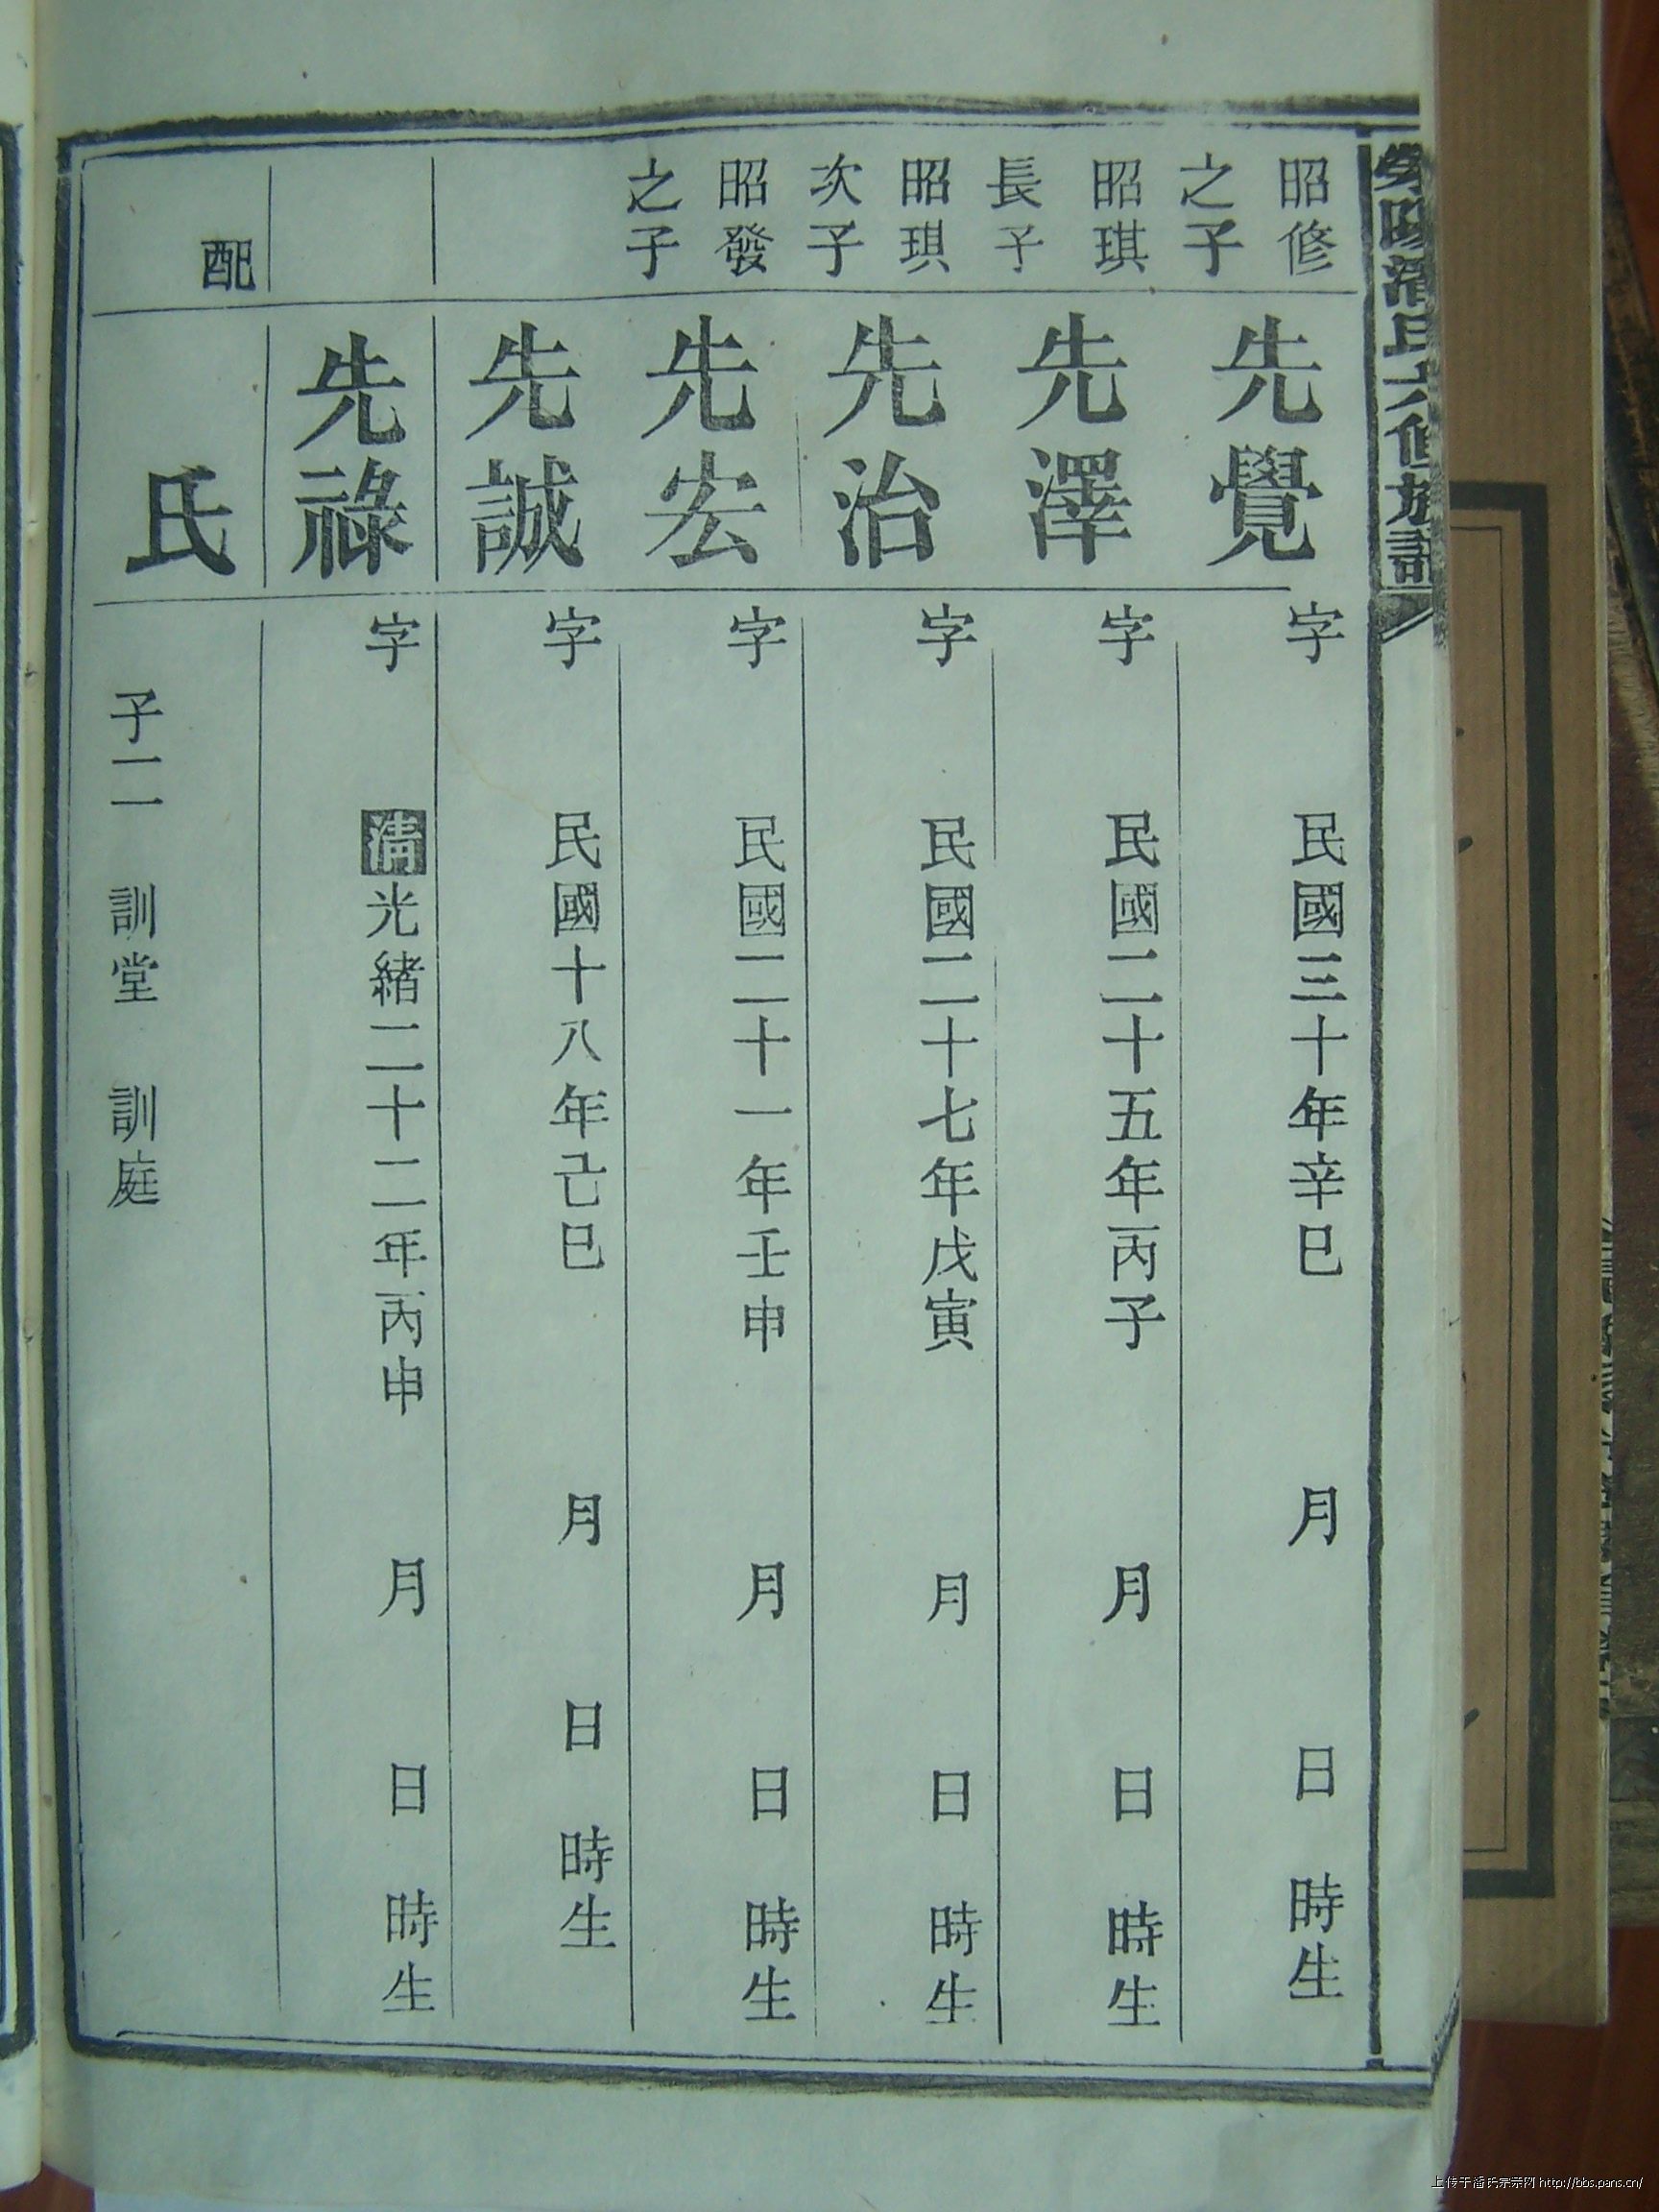 滎陽潘氏六修族譜
昭修
之子
先覺
字 民國三十年辛巳 月 日 時生
昭琪
長子
先澤
字 民國二十五年丙子 月 日 時生
昭琪
次子
先治
字 民國二十七年戊寅 月 日 時生
昭發
之子
先宏
字 民國二十一年壬申 月 日 時生
先誠
字 民國十八年己巳 月 日 時生
先祿
字 清光緒二十二年丙申 月 日 時生
配
氏
子二 訓堂 訓庭
上传于潘氏宗亲网 http://bbs.pans.cn/